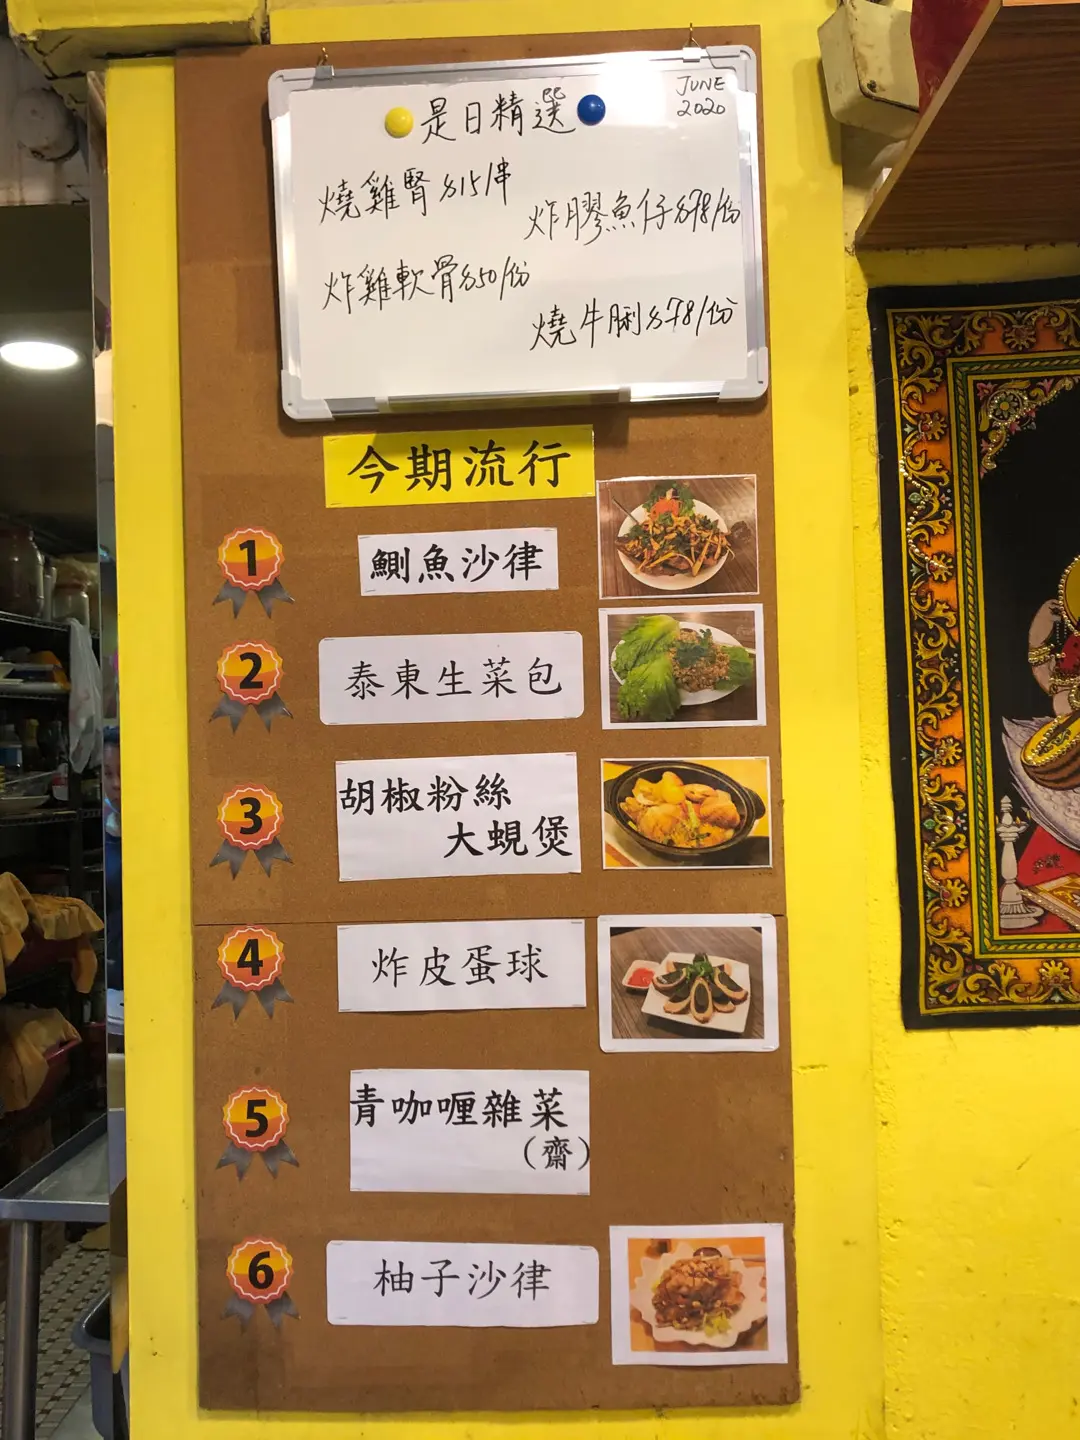 是日精選
JUNE
2020
燒雞腎$15/串
炸膠魚仔$78/份
炸雞軟骨$50/份
燒牛脷$78/份
今期流行
1
鰂魚沙律
2
泰東生菜包
3
胡椒粉絲
大蜆煲
4
炸皮蛋球
5
青咖喱雜菜
（齋）
6
柚子沙律